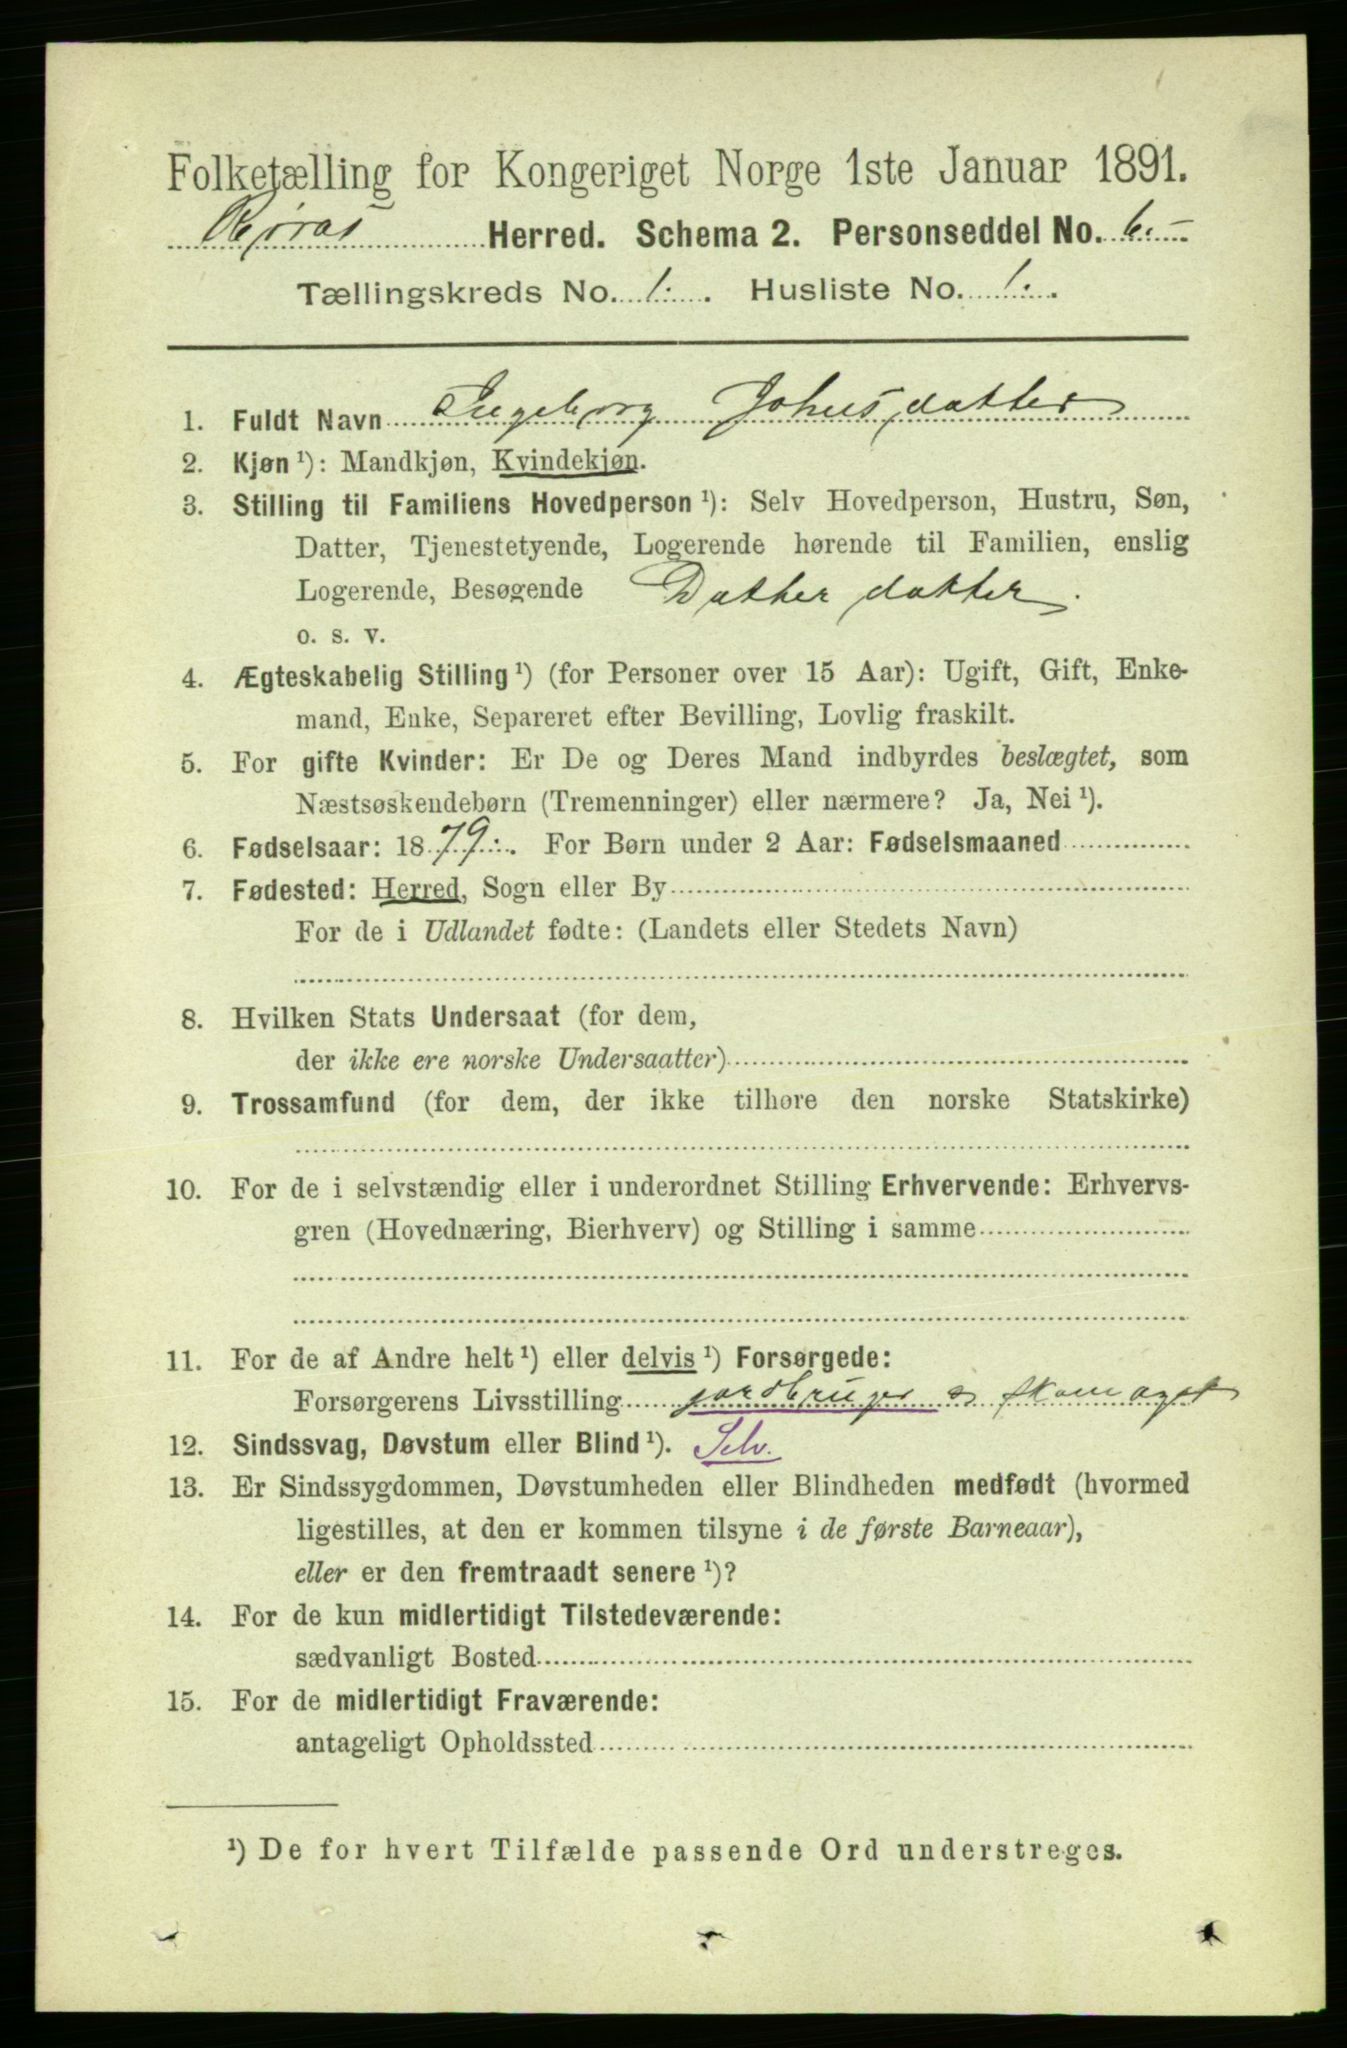 Folketælling for Kongeriget Norge 1ste Januar 1891.
Røros Herred. Schema 2. Personseddel No. 6.
Tællingskreds No. 1. Husliste No. 1.
1. Fuldt Navn Ingeborg Johnsdatter
2. Kjøn ¹): Mandkjøn, Kvindekjøn.
3. Stilling til Familiens Hovedperson ¹): Selv Hovedperson, Hustru, Søn,
Datter, Tjenestetyende, Logerende hørende til Familien, enslig
Logerende, Besøgende Datter datter.
o. s. v.
4. Ægteskabelig Stilling ¹) (for Personer over 15 Aar): Ugift, Gift, Enke-
mand, Enke, Separeret efter Bevilling, Lovlig fraskilt.
5. For gifte Kvinder: Er De og Deres Mand indbyrdes beslægtet, som
Næstsøskendebørn (Tremenninger) eller nærmere? Ja, Nei ¹).
6. Fødselsaar: 1879. For Børn under 2 Aar: Fødselsmaaned
7. Fødested: Herred, Sogn eller By
For de i Udlandet fødte: (Landets eller Stedets Navn)
8. Hvilken Stats Undersaat (for dem,
der ikke ere norske Undersaatter)
9. Trossamfund (for dem, der ikke tilhøre den norske Statskirke)
10. For de i selvstændig eller i underordnet Stilling Erhvervende: Erhvervs-
gren (Hovednæring, Bierhverv) og Stilling i samme
11. For de af Andre helt ¹) eller delvis ¹) Forsørgede:
Forsørgerens Livsstilling jordbruger
12. Sindssvag, Døvstum eller Blind ¹). Selv.
13. Er Sindssygdommen, Døvstumheden eller Blindheden medfødt (hvormed
ligestilles, at den er kommen tilsyne i de første Barneaar),
eller er den fremtraadt senere ¹)?
14. For de kun midlertidigt Tilstedeværende:
sædvanligt Bosted
15. For de midlertidigt Fraværende:
antageligt Opholdssted
¹) De for hvert Tilfælde passende Ord understreges.